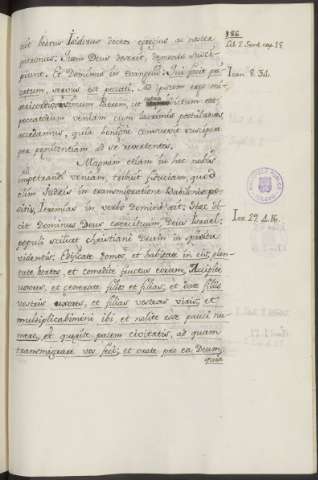 386
Lib. 2. Sent. cap. 15
uit beatus Isidorus doctor egregius ac noster
patronus: Quem Deus deserit, demones susci-
piunt. Et Dominus in Evangelio: Qui facit pec-
catum, servus est peccati. Ad ipsum ergo mi-
sericordissimum Patrem, et
peccatorum veniam cum lacrimis postulantes
accedamus, quia benigne consuevit suscipere
per penitentiam ad se revertentes.
Joan. 8. 34.
Magnam etiam in hac nobis
impetrandi veniam, tribuit fiduciam, quod
cum Judeis in transmigratione Babilonis po-
sitis, Jeremias in verbo Domini ait: Hæc di-
cit Dominus Deus exercituum, Deus Israel:
populi scilicet christiani Deum in
videntis. Edificate domos, et habitate in eis, plan-
tate hortos, et comedite fructus eorum. Accipite
uxores, et generate filios et filias; et date filiis
vestris uxores, et filias vestras viris; et
multiplicabimini ibi et nolite esse pauci nu-
mero, et querite pacem civitatis, ad quam
transmigrare vos feci; et orate pro ea Deum,
quia
Jer. 29. 4.